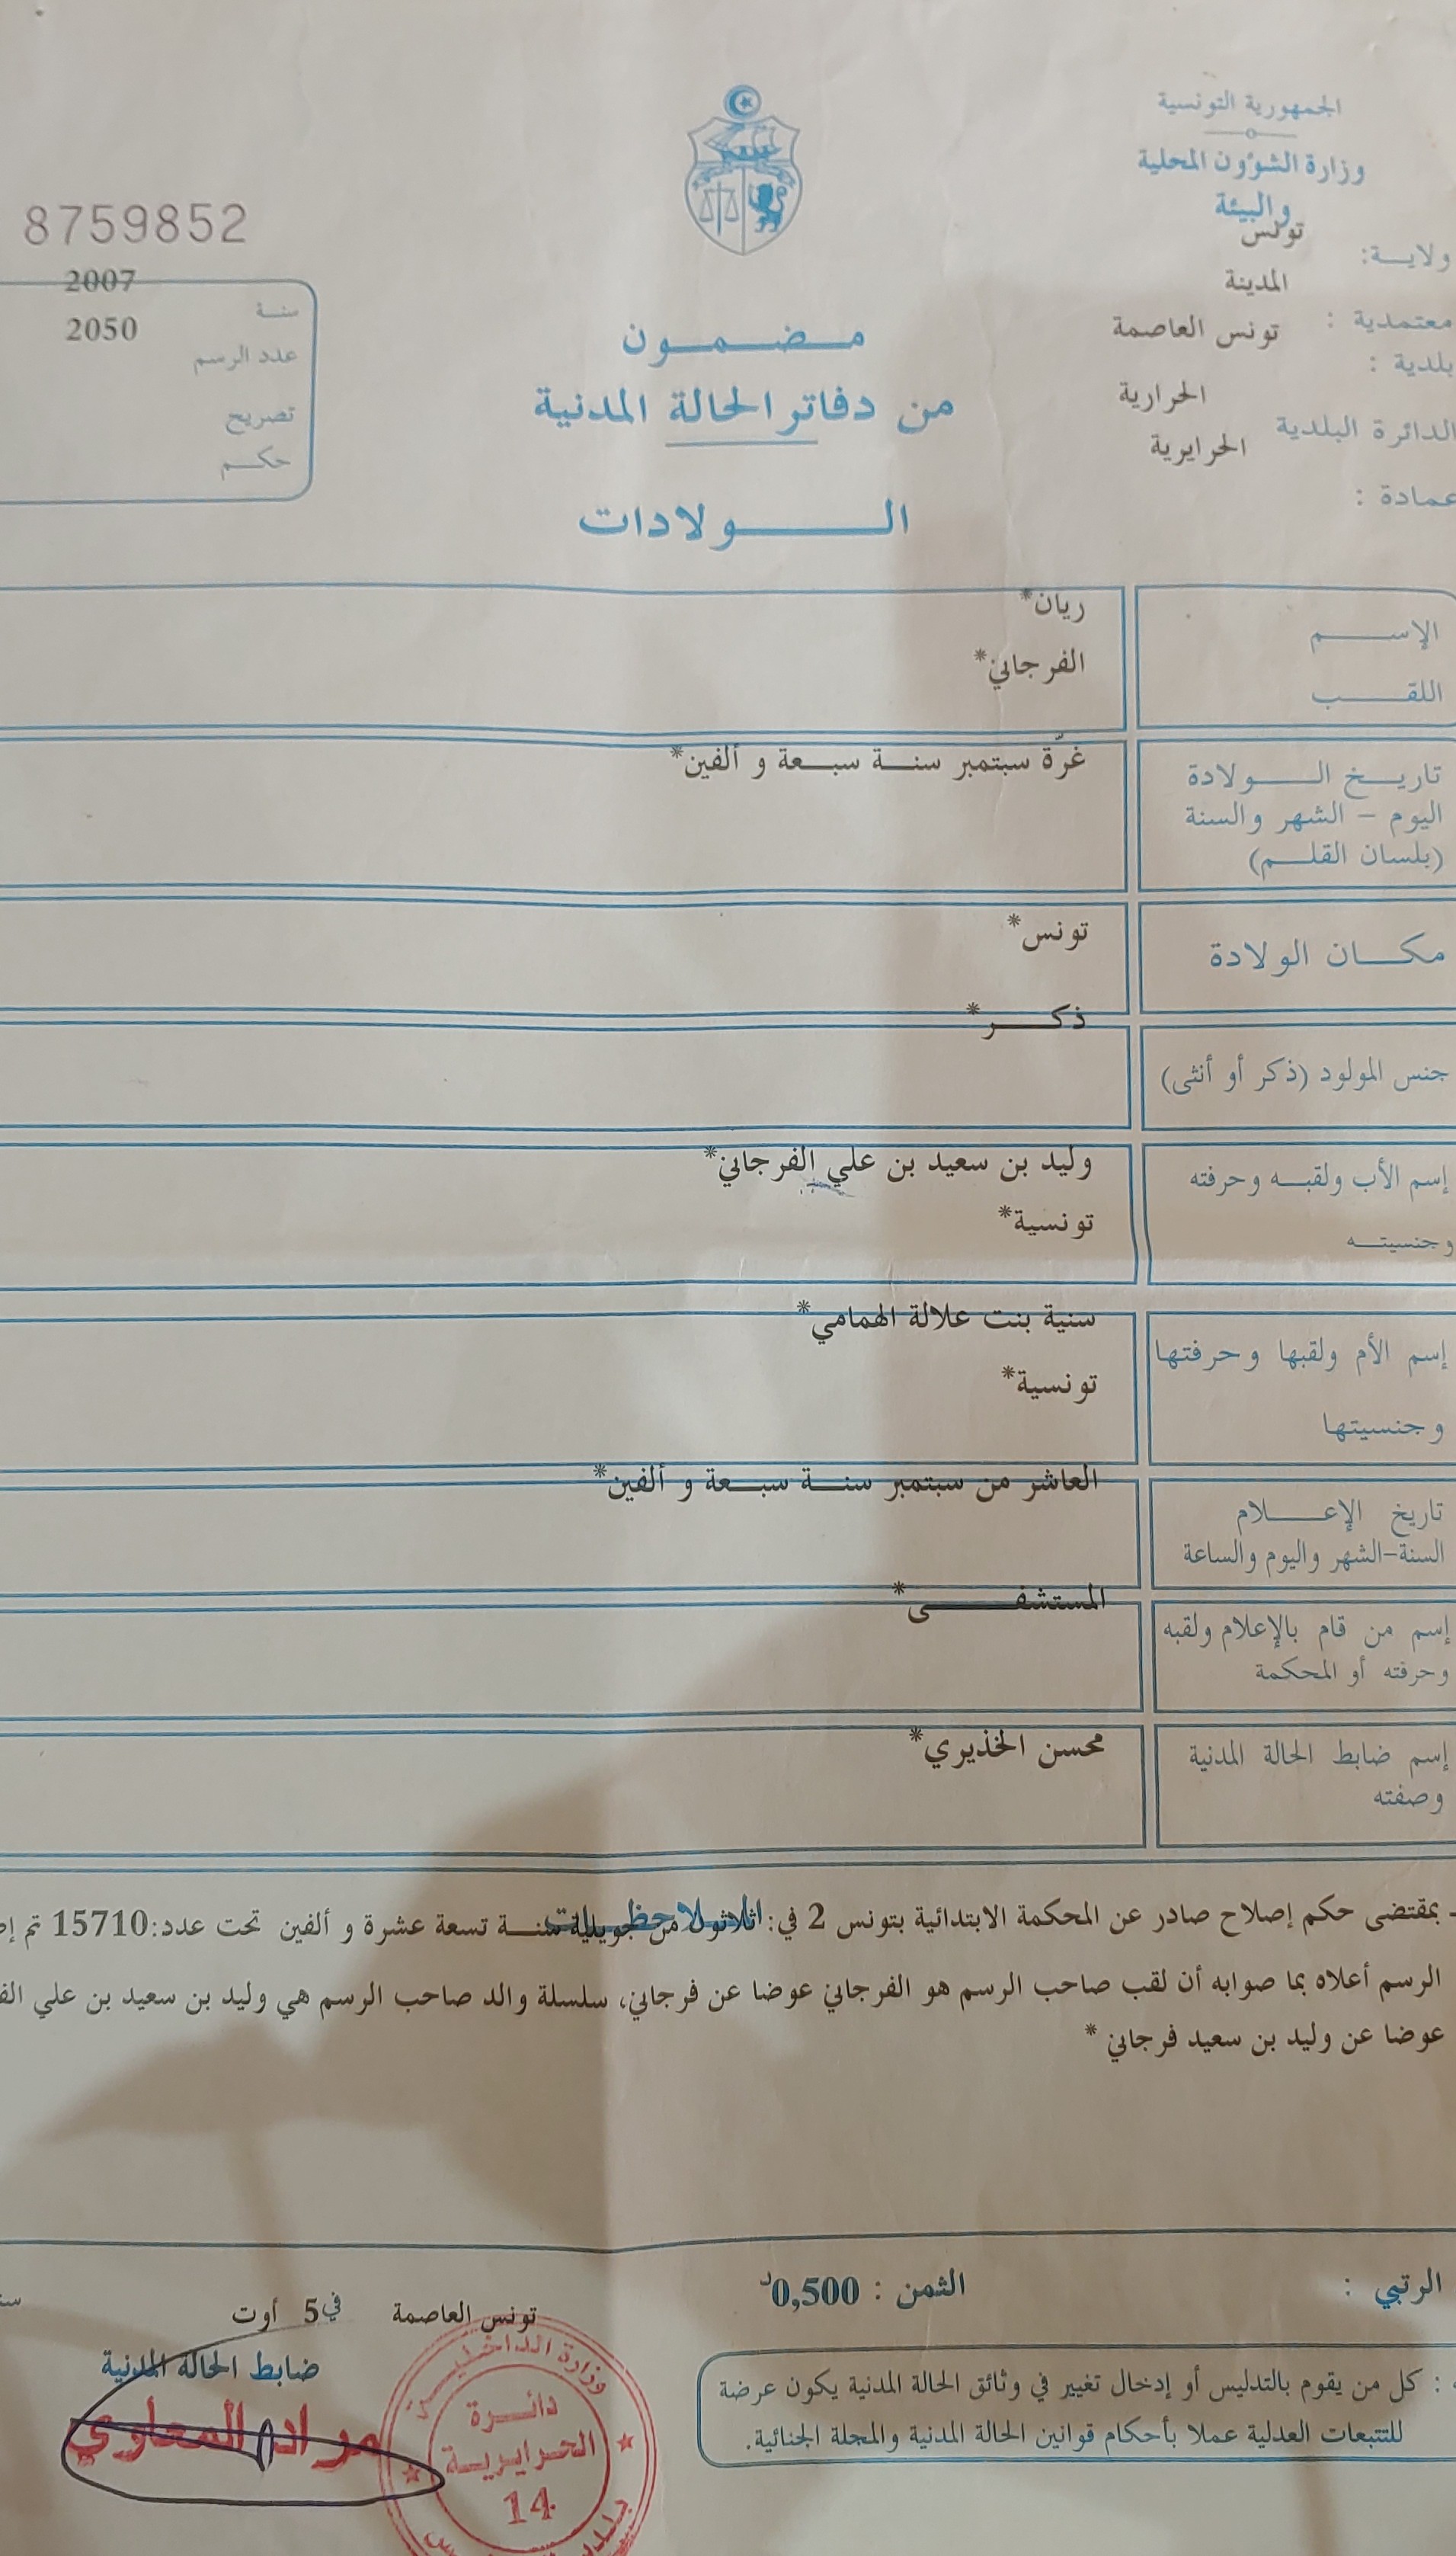 الجمهورية التونسية
وزارة الشؤون المحلية
والبيئة
ولاية: تونس
معتمدية : المدينة
بلدية : تونس العاصمة
الدائرة البلدية الحرارية
عمادة : الحرايرية
8759852
سنة 2007
عدد الرسم 2050
تصريح
حكم
مضمون
من دفاتر الحالة المدنية
الولادات
الإسم ريان*
اللقب الفرجاني*
تاريخ الولادة غرّة سبتمبر سنة سبعة و ألفين*
اليوم - الشهر والسنة
(بلسان القلم)
مكان الولادة تونس*
جنس المولود (ذكر أو أنثى) ذكر*
إسم الأب ولقبه وحرفته وليد بن سعيد بن علي الفرجاني*
وجنسيته تونسية*
إسم الأم ولقبها وحرفتها سنية بنت علالة الهمامي*
وجنسيتها تونسية*
تاريخ الإعلام العاشر من سبتمبر سنة سبعة و ألفين*
السنة-الشهر واليوم والساعة
إسم من قام بالإعلام ولقبه المستشفى*
وحرفته أو المحكمة
إسم ضابط الحالة المدنية محسن الخذيري*
وصفته
الملاحظات
- بمقتضى حكم إصلاح صادر عن المحكمة الابتدائية بتونس 2 في: ثلاثون من جويلية سنة تسعة عشرة و ألفين تحت عدد:15710 تم
الرسم أعلاه بما صوابه أن لقب صاحب الرسم هو الفرجاني عوضا عن فرجاني، سلسلة والد صاحب الرسم هي وليد بن سعيد بن علي
عوضا عن وليد بن سعيد فرجاني *
الرتبي :
الثمن : 0,500د
تونس العاصمة في 5 أوت
ضابط الحالة المدنية
مراد المعاوي
وزارة الداخلية
دائرة
الحرايرية
14
: كل من يقوم بالتدليس أو إدخال تغيير في وثائق الحالة المدنية يكون عرضة
للتتبعات العدلية عملا بأحكام قوانين الحالة المدنية والمجلة الجنائية.